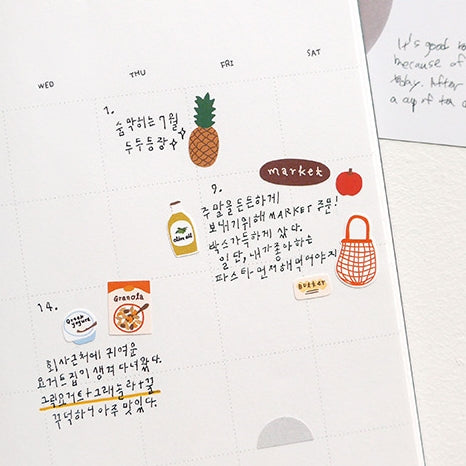 WED THU FRI SAT
1.
숨막히는 7월
두두등장
market
9.
주말을 든든하게
보내기위해 MARKET 주문!
박스가득하게 샀다.
일단, 내가좋아하는
파스타먼저해먹어야지
olive oil
BUTTER
14.
Greek yogurt
Granola
회사근처에 귀여운
요거트집이 생겨 다녀왔다.
그릭요거트+그래놀라+꿀
꾸덕하니 아주 맛있다.
It's good
because of
today. After
a cup of tea